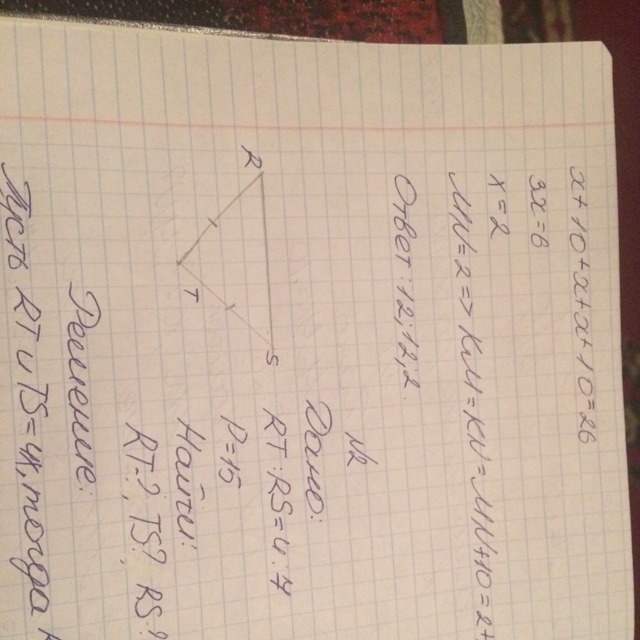 x+10+x+x+10=26
3x=6
x=2
MN=2=>KM=KN=MN+10=2+
Ответ: 12; 12; 2.
№2
Дано:
R
S
T
RT:RS=4:7
P=15
Найти:
RT-?, TS?, RS?
Решение:
Пусть RT и TS=4x, тогда